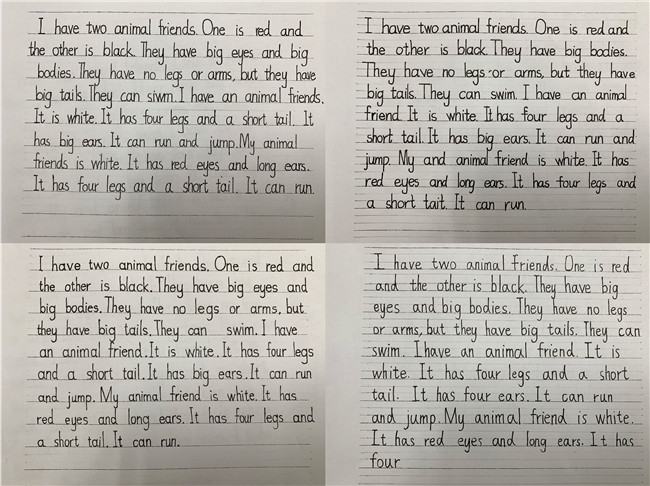 I have two animal friends. One is red and
the other is black. They have big eyes and big
bodies. They have no legs or arms, but they have
big tails. They can siwm. I have an animal friends.
It is white. It has four legs and a short tail. It
has big ears. It can run and jump. My animal
friends is white. It has red eyes and long ears.
It has four legs and a short tail. It can run.
I have two animal friends. One is red and
the other is black. They have big bodies.
They have no legs or arms, but they have
big tails. They can swim. I have an animal
friend. It is white. It has four legs and a
short tail. It has big ears. It can run and
jump. My and animal friend is white. It has
red eyes and long ears. It has four legs and
a short tait. It can run.
I have two animal friends. One is red and
the other is black. They have big eyes and
big bodies. They have no legs or arms, but
they have big tails. They can swim. I have
an animal friend. It is white. It has four legs
and a short tail. It has big ears. It can run
and jump. My animal friend is white. It has
red eyes and long ears. It has four legs and
a short tail. It can run.
I have two animal friends. One is red
and the other is black. They have big
eyes and big bodies. They have no legs
or arms, but they have big tails. They can
swim. Ihave an animal friend. It is
white. It has four legs and a short
tail. It has four ears. It can run
and jump. My animal friend is white.
It has red eyes and long ears. It has
four